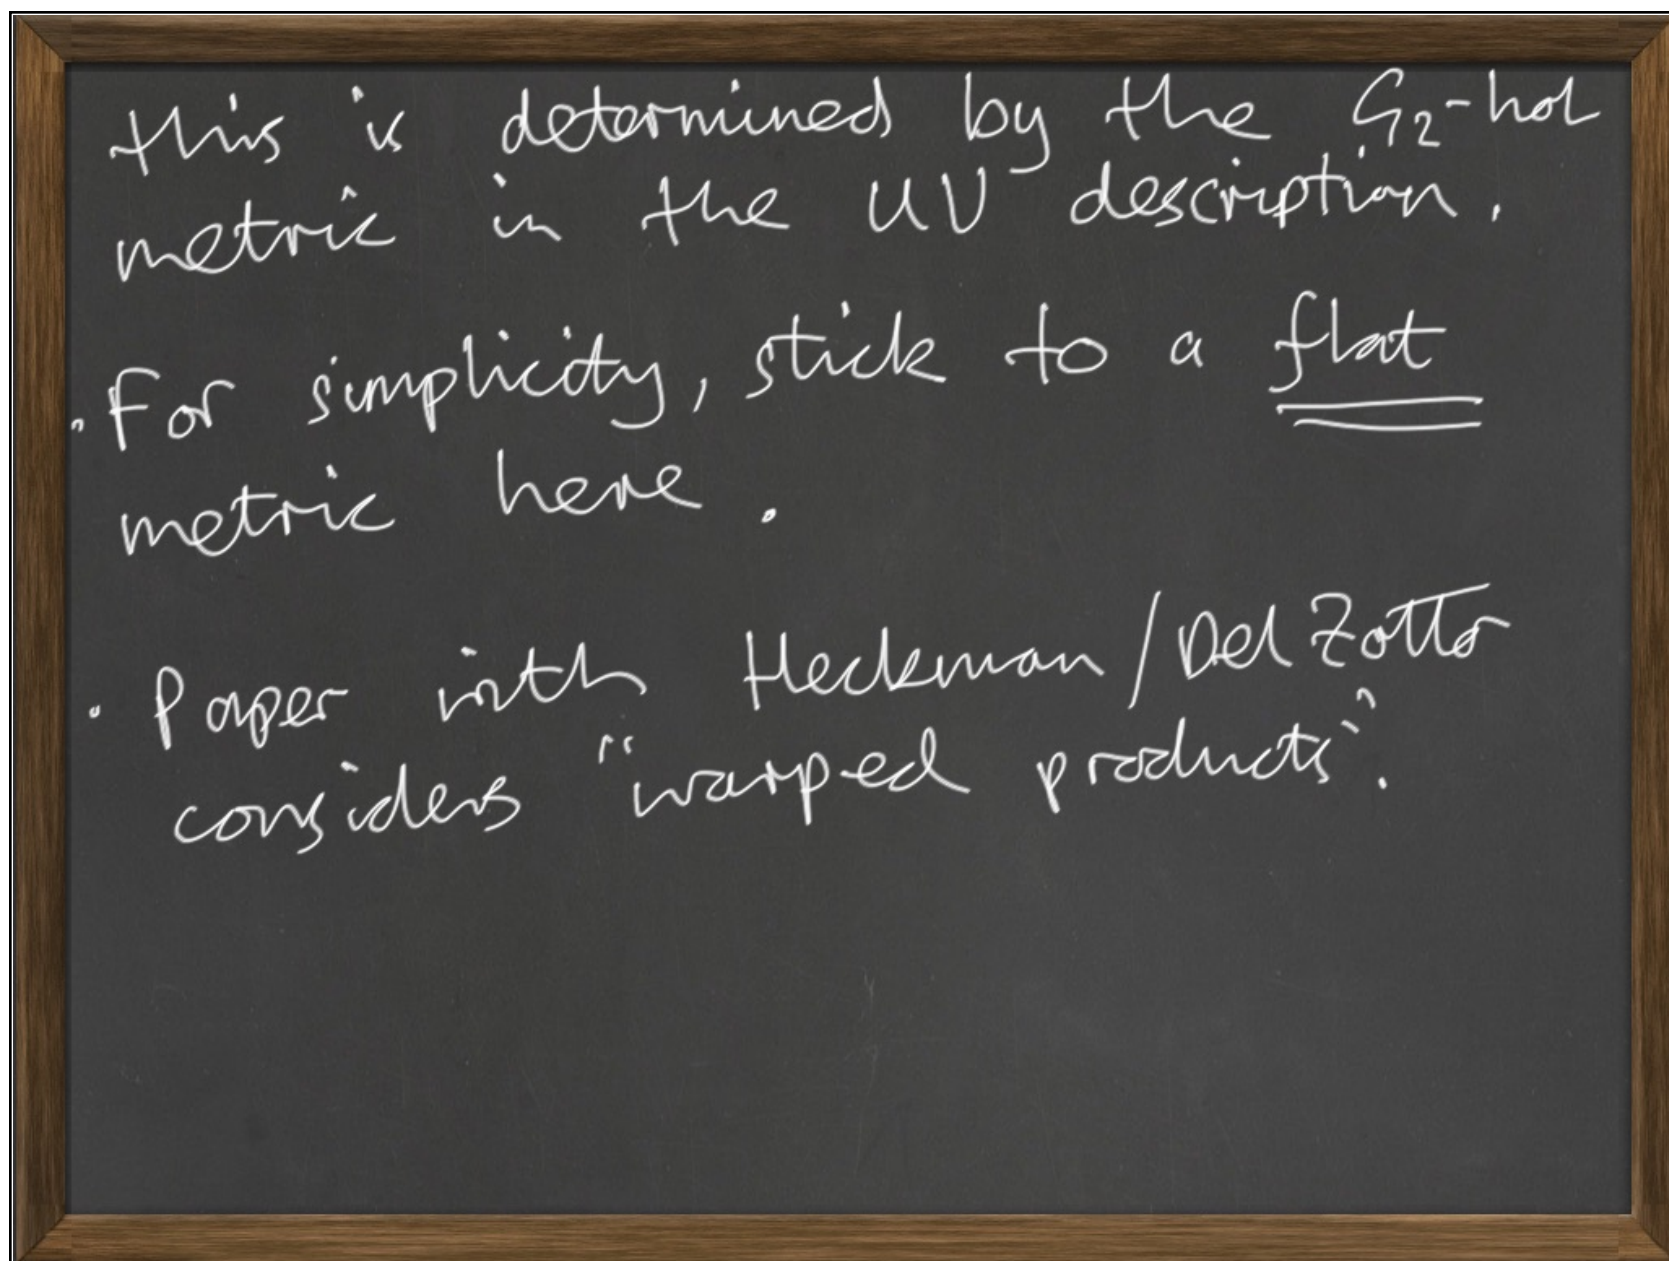 this is determined by the G₂-hol
metric in the UV description.
· For simplicity, stick to a flat
metric here.
· Paper with Heckman / Del Zotto
considers "warped products".